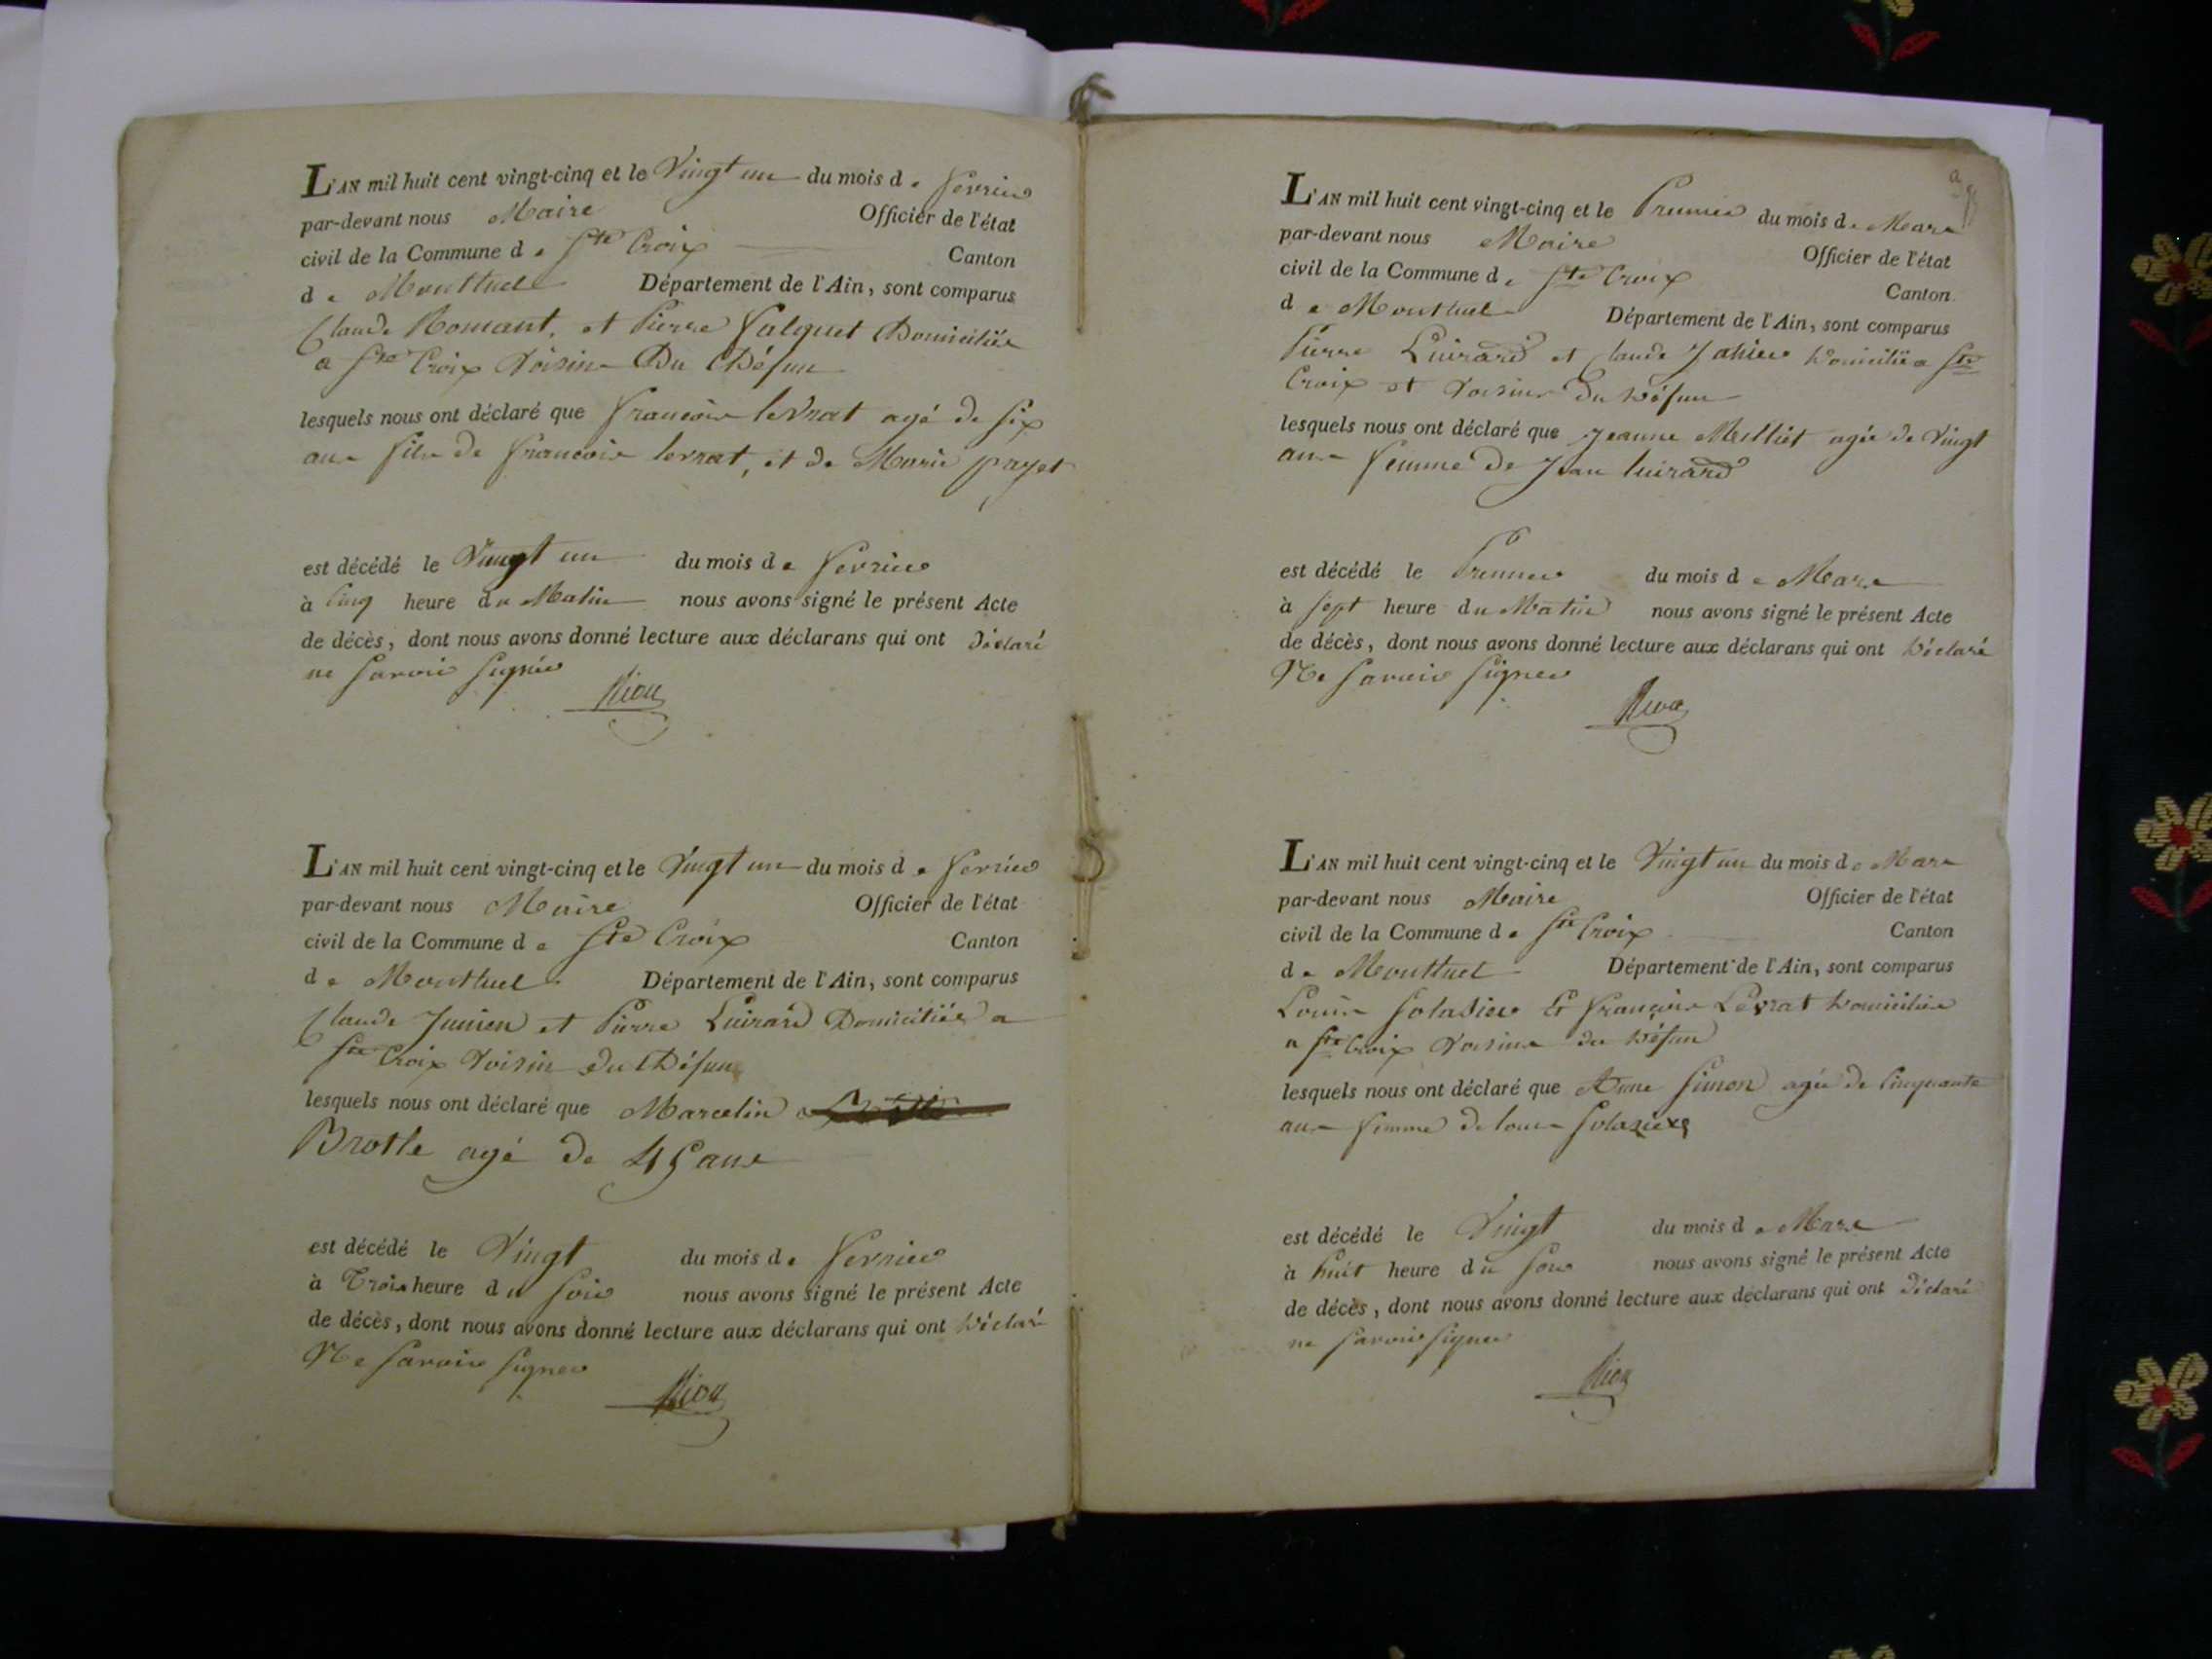 L'AN mil huit cent vingt-cinq et le Vingt un du mois de fevrier
par-devant nous Maire Officier de l'état
civil de la Commune de Ste Croix Canton
de Montluel Département de l'Ain, sont comparus
Claude Romant, et Pierre Falquet Domiciliés
a Ste Croix Voisins Du Défun
lesquels nous ont déclaré que francois levrat agé de six
ans fils de francois levrat, et de Marie payet
est décédé le Vingt un du mois de fevrier
à Cinq heure du Matin nous avons signé le présent Acte
de décès, dont nous avons donné lecture aux déclarans qui ont Déclaré
ne savoir signer
Riou
L'AN mil huit cent vingt-cinq et le Vingt un du mois de fevrier
par-devant nous Maire Officier de l'état
civil de la Commune de Ste Croix Canton
de Montluel Département de l'Ain, sont comparus
Claude Junion et Pierre Luirard Domiciliés a
Ste Croix Voisin du Défun
lesquels nous ont déclaré que Marcelin
Brotte agé de 45 ans
est décédé le Vingt du mois de fevrier
à Trois heure du soir nous avons signé le présent Acte
de décès, dont nous avons donné lecture aux déclarans qui ont Déclaré
Ne savoir signer
Riou
L'AN mil huit cent vingt-cinq et le Premier du mois de Mars
par-devant nous Maire Officier de l'état
civil de la Commune de Ste Croix Canton
de Montluel Département de l'Ain, sont comparus
Pierre Luirard et Claude Jahier Domicilié a Ste
Croix et Voisins du Défun
lesquels nous ont déclaré que Jeanne Milliet agée de Vingt
ans femme de Jean luirard
est décédé le Premier du mois de Mars
à sept heure du Matin nous avons signé le présent Acte
de décès, dont nous avons donné lecture aux déclarans qui ont Déclaré
Ne savoir signer
Riou
L'AN mil huit cent vingt-cinq et le Vingt un du mois de Mars
par-devant nous Maire Officier de l'état
civil de la Commune de Ste Croix Canton
de Montluel Département de l'Ain, sont comparus
Louis Solasier Et françois Levrat Domiciliés
a Ste Croix Voisins du Défun
lesquels nous ont déclaré que Anne Simon agée de Cinquante
ans femme de louis Solasier
est décédé le Vingt du mois de Mars
à huit heure du soir nous avons signé le présent Acte
de décès, dont nous avons donné lecture aux déclarans qui ont Déclaré
ne savoir signer
Riou